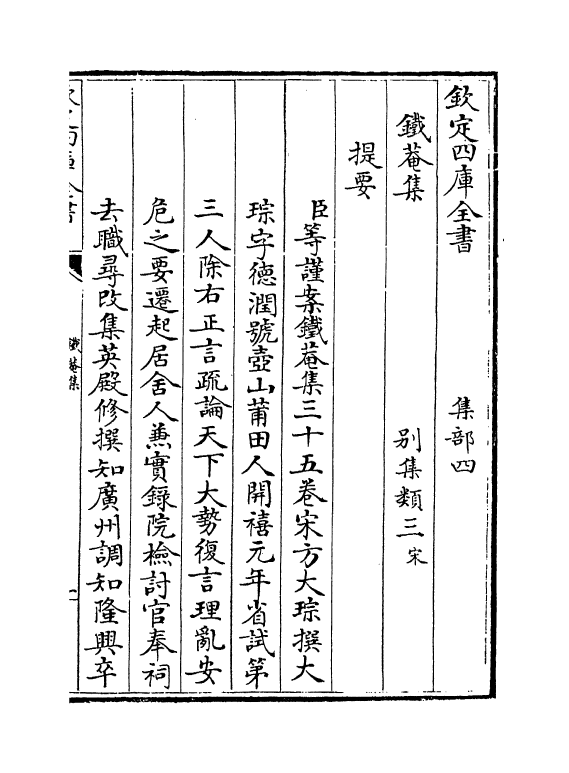 欽定四庫全書 集部四
鐵菴集 别集類三宋
提要
臣等謹案鐵菴集三十五卷宋方大琮撰大
琮字德潤號壺山莆田人開禧元年省試第
三人除右正言疏論天下大勢復言理亂安
危之要遷起居舍人兼實錄院檢討官奉祠
去職尋改集英殿修撰知廣州調知隆興卒
鐵菴集